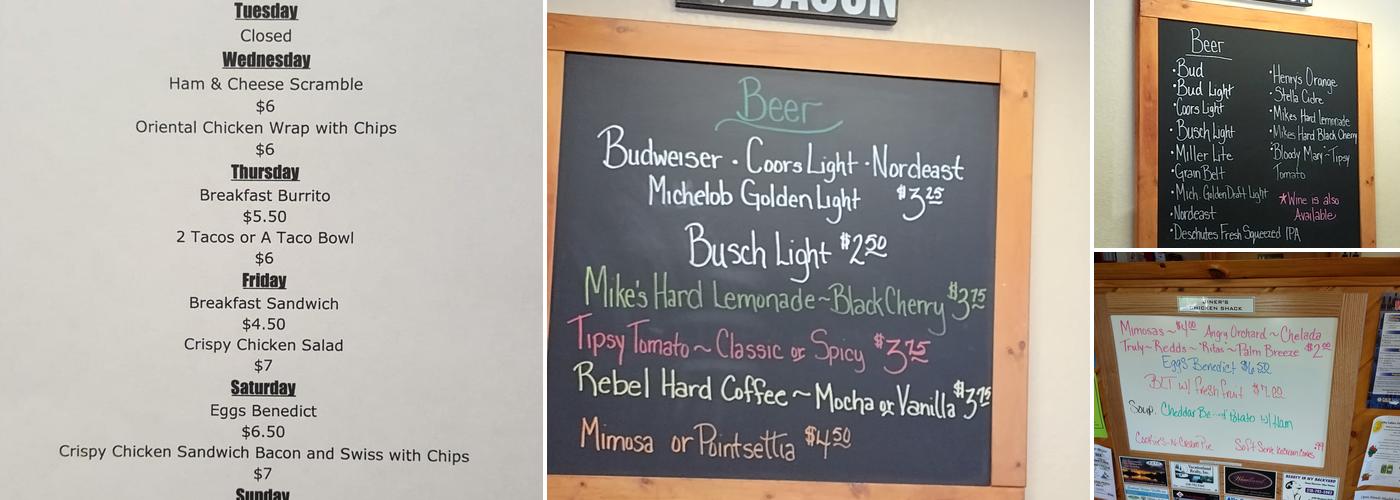 Tuesday
Closed
Wednesday
Ham & Cheese Scramble
$6
Oriental Chicken Wrap with Chips
$6
Thursday
Breakfast Burrito
$5.50
2 Tacos or A Taco Bowl
$6
Friday
Breakfast Sandwich
$4.50
Crispy Chicken Salad
$7
Saturday
Eggs Benedict
$6.50
Crispy Chicken Sandwich Bacon and Swiss with Chips
$7
Sunday
BACON
Beer
Budweiser · Coors Light · Nordeast
Michelob Golden Light $3.25
Busch Light $2.50
Mike's Hard Lemonade ~ Black Cherry $3.75
Tipsy Tomato ~ Classic or Spicy $3.75
Rebel Hard Coffee ~ Mocha or Vanilla $3.75
Mimosa or Pointsettia $4.50
Beer
·Bud
·Bud Light
·Coors Light
·Busch Light
·Miller Lite
·Grain Belt
·Mich. Golden Draft Light
·Nordeast
·Deschutes Fresh Squeezed IPA
·Henry's Orange
·Stella Cidre
·Mikes Hard lemonade
·Mikes Hard Black Cherry
·Bloody Mary ~ Tipsy
Tomato
*Wine is also
Available
CHICKEN SHACK
Mimosas ~ $4.00 Angry Orchard ~ Chelada
Truly ~ Redds ~ 'Ritas' ~ Palm Breeze $2.00
Eggs Benedict $6.50
BLT w/ fresh fruit $7.00
Soup: Cheddar Potato w/ Ham
Cookies-N-Cream Pie Soft Serve Ice Cream Cones .99